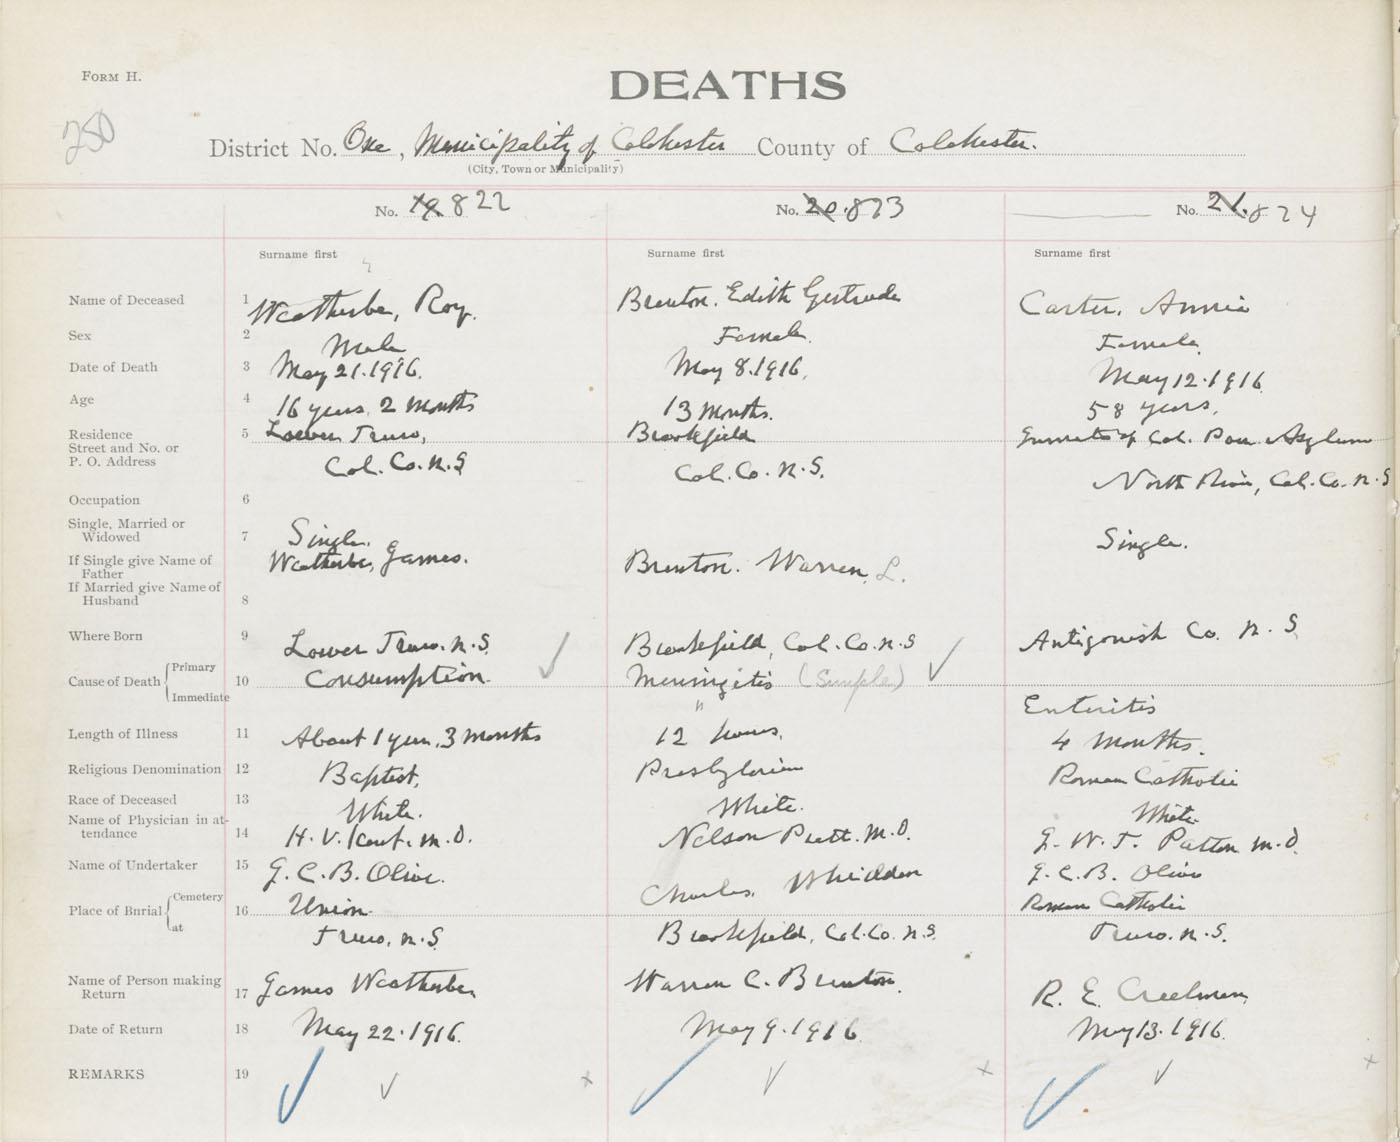 FORM H.
DEATHS
250
District No. One, Municipality of Colchester County of Colchester.
(City, Town or Municipality)
No. 19. 822
No. 20. 823
No. 21. 824
Surname first
Surname first
Surname first
Name of Deceased 1 Weatherbe, Roy. Brenton. Edith Gertrude Carter, Annie
Sex 2 Male Female. Female.
Date of Death 3 May 21.1916. May 8.1916. May 12.1916
Age 4 16 years. 2 months 13 months. 58 years.
Residence 5 Lower Truro, Brookfield Inmate of Col. Poor Asylum
Street and No. or
P. O. Address Col. Co. N.S Col. Co. N.S. North River, Col. Co. N.S
Occupation 6
Single, Married or
Widowed 7 Single. Single.
If Single give Name of
Father Weatherbe, James. Brenton. Warren. L.
If Married give Name of
Husband 8
Where Born 9 Lower Truro. N.S. Brookfield, Col. Co. N.S Antigonish Co. N.S.
Cause of Death Primary Immediate 10 Consumption. Meningitis (Simple) Enteritis
"
Length of Illness 11 About 1 year, 3 months 12 hours. 4 months.
Religious Denomination 12 Baptist. Presbyterian Roman Catholic
Race of Deceased 13 White. White. White
Name of Physician in at-
tendance 14 H. V. Kent. M.D. Nelson Pratt. M.D. J. W. T. Patton M.D.
Name of Undertaker 15 G. C. B. Olive. Charles. Whidden G. C. B. Olive
Place of Burial Cemetery at 16 Union. Roman Catholic
Truro, N.S. Brookfield, Col. Co. N.S. Truro. N.S.
Name of Person making
Return 17 James Weatherbe Warren C. Brenton. R. E. Creelman
Date of Return 18 May 22.1916. May 9.1916 May 13.1916.
REMARKS 19